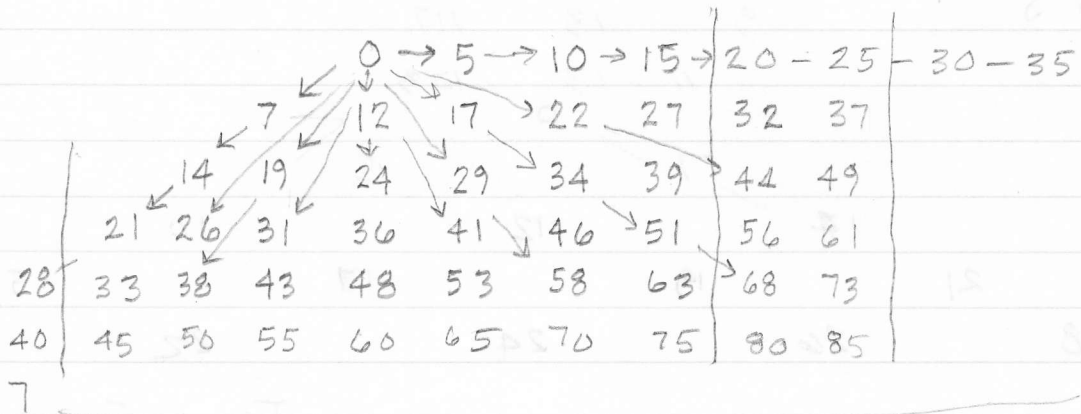 0 → 5 → 10 → 15 → 20 - 25 - 30 - 35
7 12 17 22 27 32 37
14 19 24 29 34 39 44 49
21 26 31 36 41 46 51 56 61
28 33 38 43 48 53 58 63 68 73
40 45 50 55 60 65 70 75 80 85
7